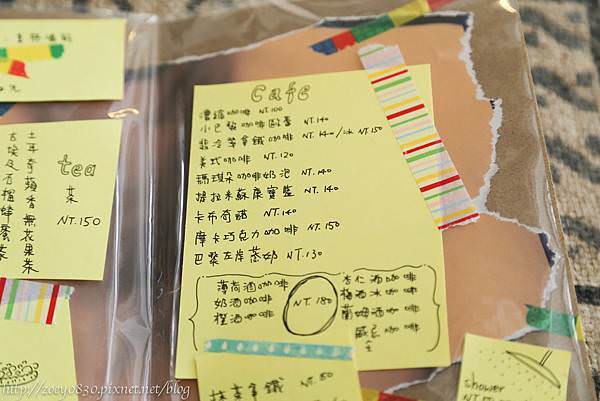 Cafe
濃縮咖啡 NT.100
小巴黎咖啡歐蕾 NT.140
翡冷翠拿鐵咖啡 NT.140/冰 NT.150
美式咖啡 NT.120
瑪琪朵咖啡奶泡 NT.140
提拉米蘇康寶藍 NT.140
卡布奇諾 NT.140
摩卡巧克力咖啡 NT.150
巴黎左岸 NT.130
薄荷酒咖啡
奶酒咖啡
橙酒咖啡
NT.180
杏仁酒咖啡
梅酒冰咖啡
蘭姆酒咖啡
威士忌咖啡
tea
茶
NT.150
土耳奇蘋香無花果茶
拿鐵 NT.150
shower
http://zoey0830.pixnet.net/blog